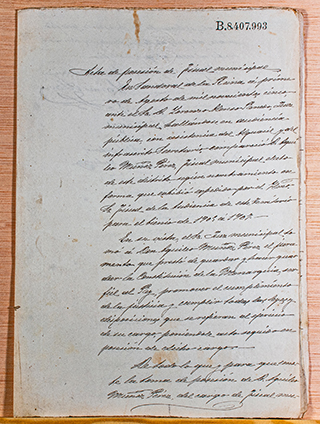 B.8.407.993
Acta de posesión de Fiscal municipal
En Sandoval de la Reina á primero
ro de Agosto de mil novecientos cinco
ante el Sr. D. Alonso Juez
municipal, hallándose en audiencia
pública, con asistencia del Alguacil y del
infrascrito Secretario, compareció D. Aqui-
lino Muñoz Pérez, Fiscal municipal electo
de este distrito, según nombramiento en
forma que exhibió expedido por el
Fiscal de la Audiencia de este territorio
para el bienio de 1905 á 1907.
En su vista, el Sr. Juez municipal to-
mó á Don Muñoz Pérez el jura-
mento que prestó de guardar y hacer guar-
dar la Constitución de la Monarquía, ser
fiel al Rey, promover el cumplimiento
de la justicia y cumplir todas las leyes y
disposiciones que se refieran al ejercicio
de su cargo, poniéndole acto seguido en
posesión de dicho cargo.
De todo lo que, y para que cons-
te la toma de posesión de D.
Muñoz Pérez, del cargo de Fiscal mu-